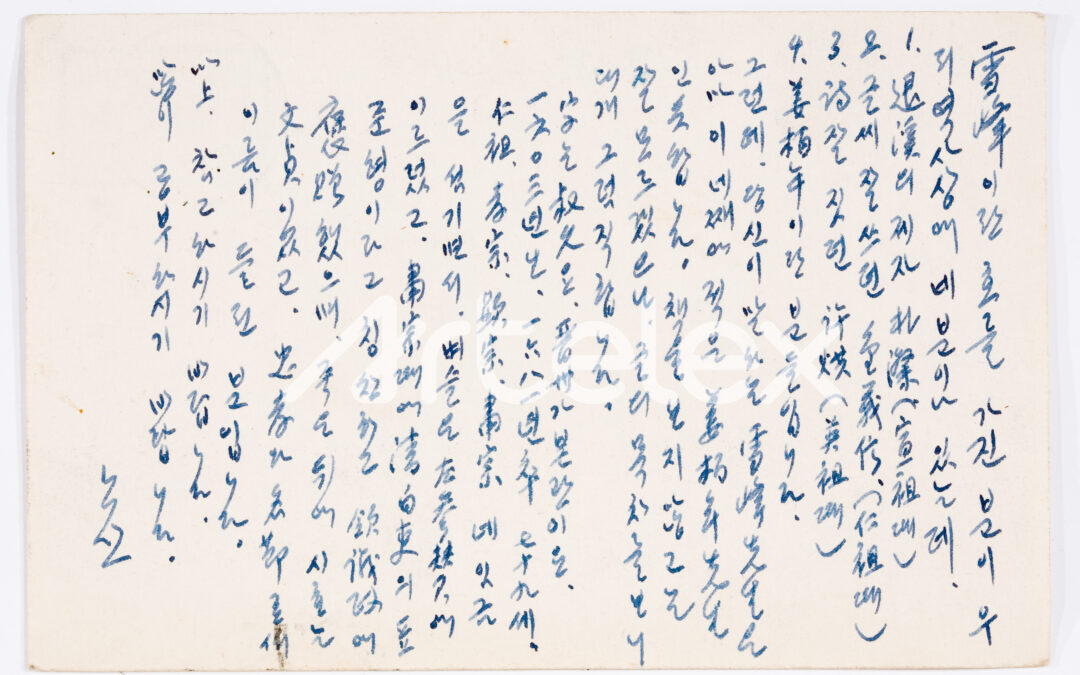 雪峰이란 호를 가진 분이 우
리 열상에 네 분이나 있는데.
1. 退溪의 제자 朴漈(宣祖때)
2. 글씨 잘 쓰던 金義信.(仁祖때)
3. 詩 잘 짓던 許熼(英祖때)
4. 姜栢年이란 분들입니다.
그런데. 당신이 말씀 雪峰先生은
아마 이 네째에 적은 姜栢年先生
인듯합니다. 책을 보지 않고는
잘 모르겠으나. 글의 목차를 보니
대개 그럼직 합니다.
字는 叔久요. 晋州가 본관이요.
一六○三년生. 一六八一년卒 七十九세.
仁祖. 孝宗. 顯宗. 肅宗 네 임금
을 섬기면서. 벼슬은 左參贊에
이르렀고. 肅宗때에 淸白吏의 표
준형이라고 칭찬한 領議政에
褒贈했으며. 죽은 뒤에 시호는
文貞이었고. 忠孝와 名節로써
이름이 들린 분입니다.
以上. 참고하시기 바랍니다.
공부하시기 바랍니다.
노산
Artelex